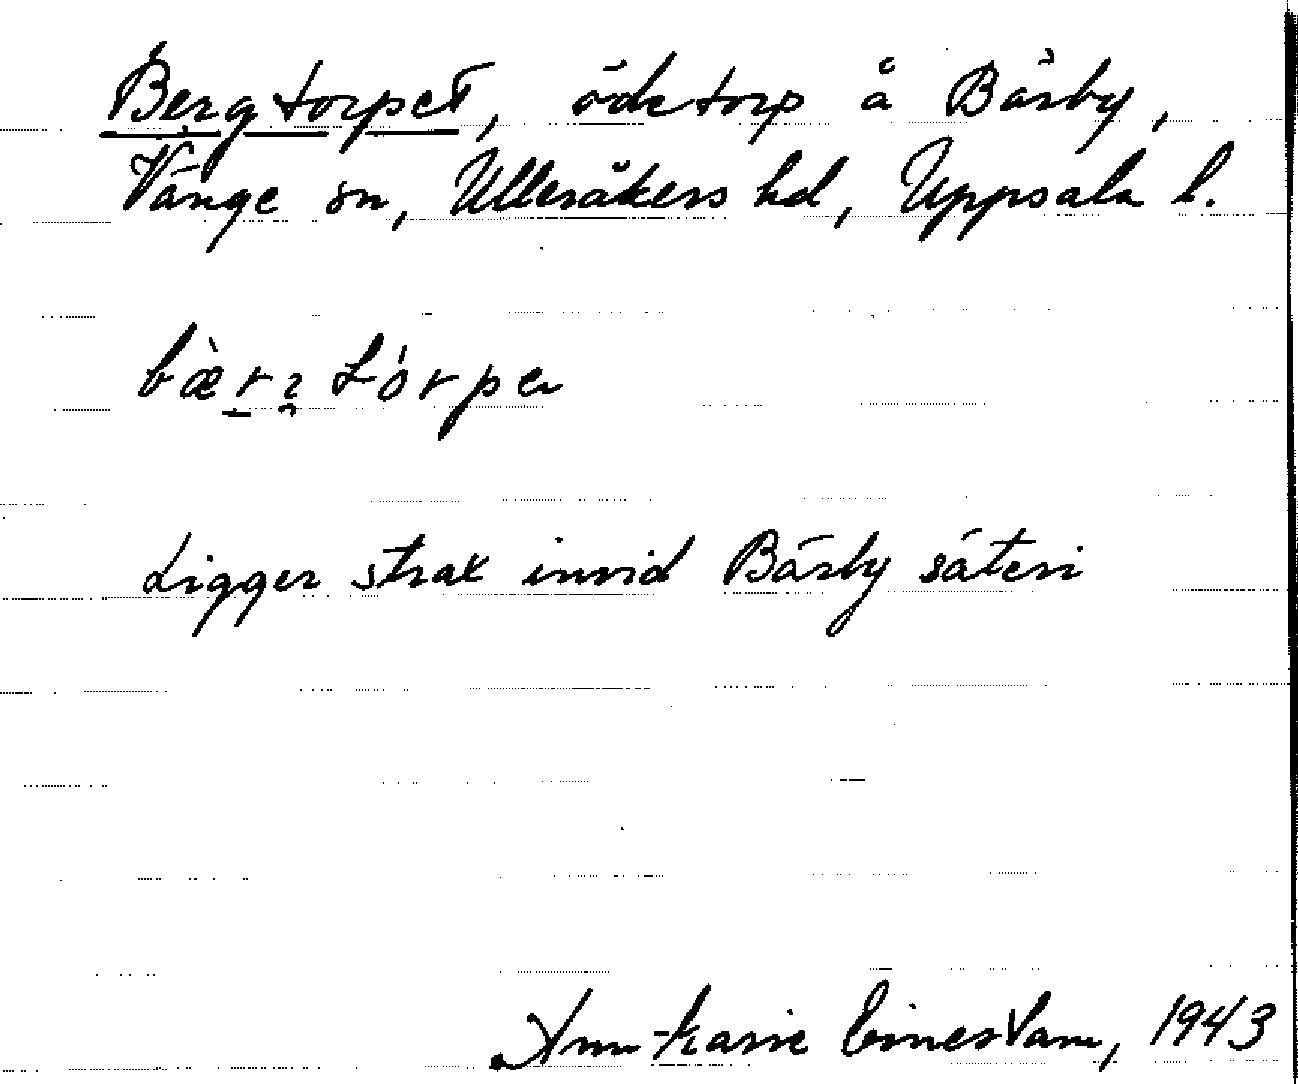 Bergtorpet, ödetorp å Bärby,
Vänge sn, Ulleråkers hd, Uppsala l.
Ligger strax invid Bärby säteri
Ann-Marie 1943